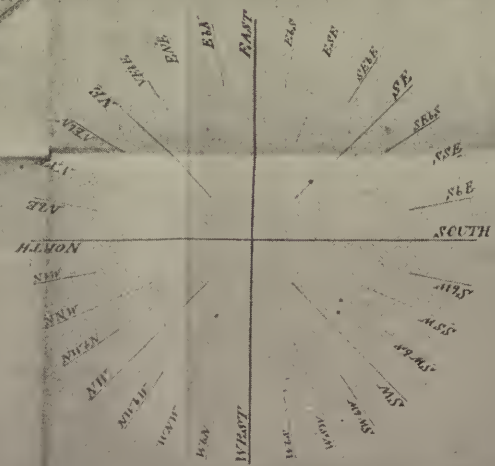 EAST
EbS
ESE
SEbE
SE
SEbS
SSE
SbE
SOUTH
SbW
SSW
SWbS
SW
SWbW
WSW
WbS
WEST
WbN
WNW
NWbW
NW
NWbN
NNW
NbW
NORTH
NbE
NEbN
NE
NEbE
ENE
EbN